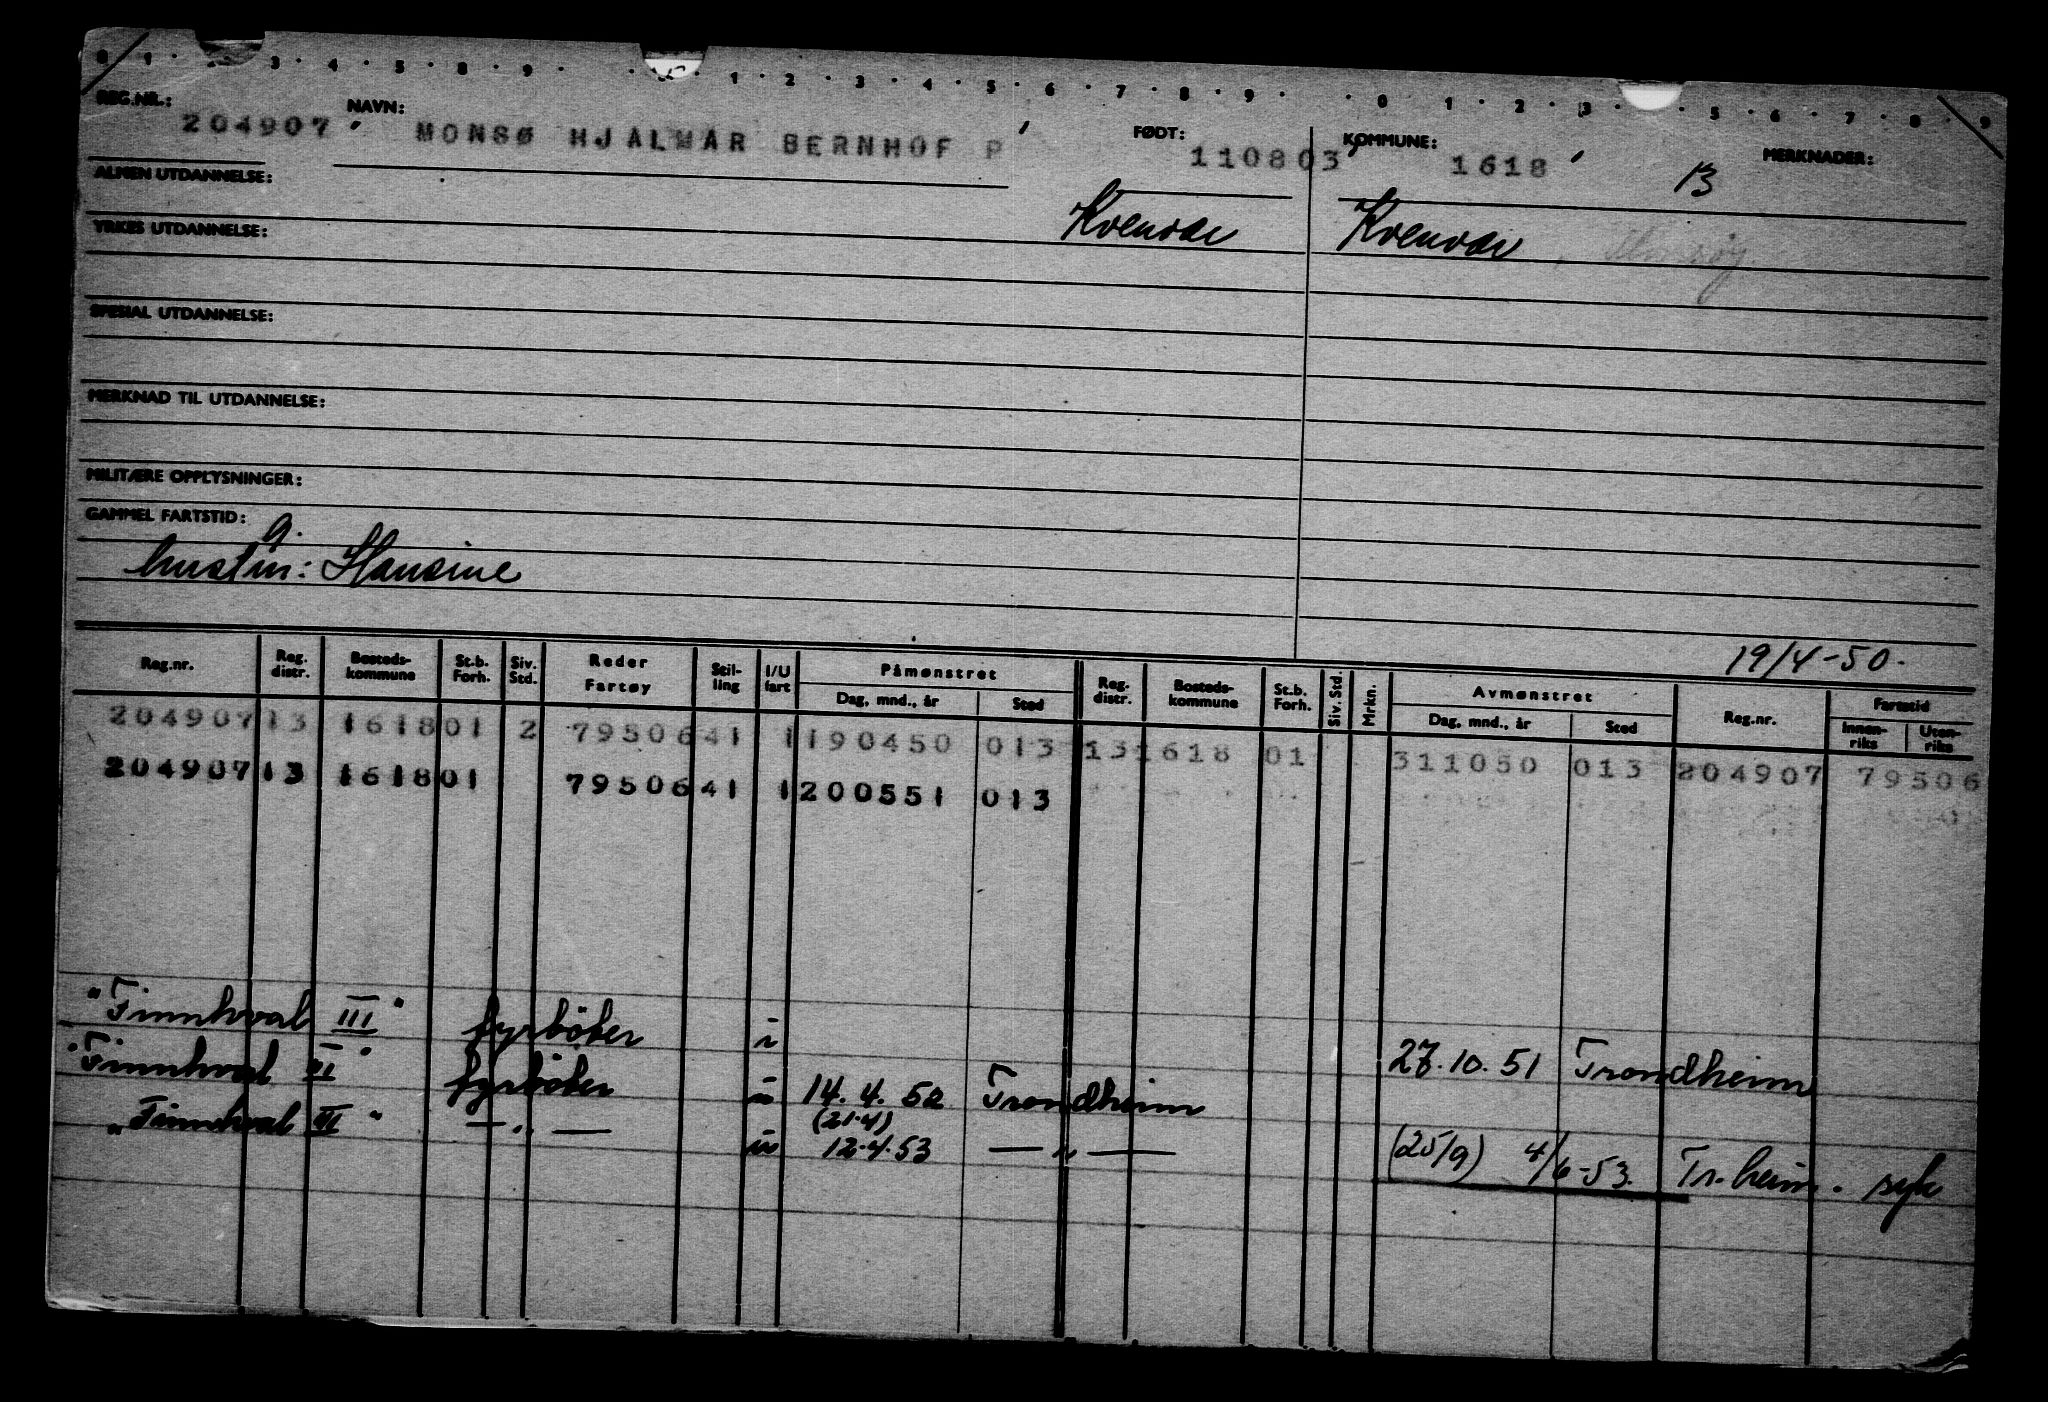 0 1 3 4 5 8 9 1 2 3 4 5 6 7 8 9 0 1 2 3 5 6 7 8 9
REG.NR.: 204907 NAVN: MONSØ HJALMAR BERNHOF P FØDT: 110803 KOMMUNE: 1618 13 MERKNADER:
ALMEN UTDANNELSE:
Kvenvær Kvenvær,
YRKES UTDANNELSE:
SPESIAL UTDANNELSE:
MERKNAD TIL UTDANNELSE:
MILITÆRE OPPLYSNINGER:
GAMMEL FARTSTID:
g.
hustru: Hansine
19/4-50.
Reg.nr. Reg. distr. Bosteds-kommune St.b. Forh. Siv. Std. Reder Fartøy Stil-ling I/U fart Påmønstret Dag, mnd., år Sted Reg. distr. Bosteds-kommune St.b. Forh. Siv. Std. Mrkn. Avmønstret Dag, mnd., år Sted Reg.nr. Fartstid Innen-riks Uten-riks
204907 13 1618 01 2 79506 41 1 190450 013 13 1618 01 311050 013 204907 79506
204907 13 1618 01 79506 41 1 200551 013
"Finnhval III" fyrböter i 27.10.51 Trondheim
"Finnhval III" fyrböter i 14.4.52 Trondheim
(21.4)
"Finnhval III" — " — 12.4.53 — " — (25/9) 4/6-53. Tr.heim. syk